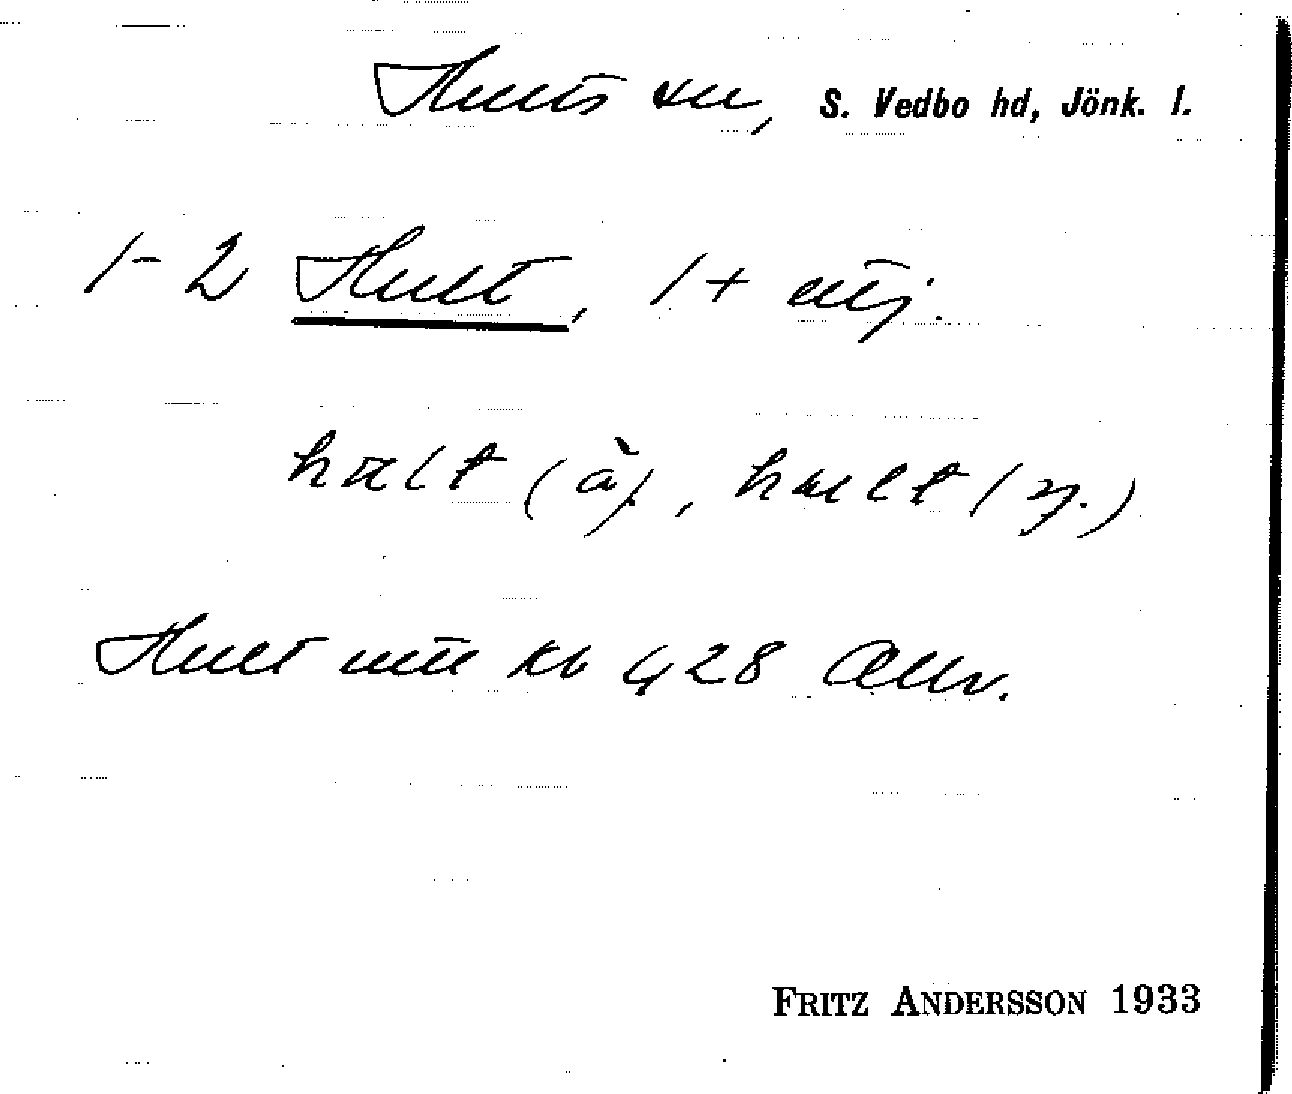 Hults sn, S. Vedbo hd, Jönk. l.
1-2 Hult, 1 + utj.
hult (ä), hult (y.)
Hult mtl kb 428 Allm.
FRITZ ANDERSSON 1933